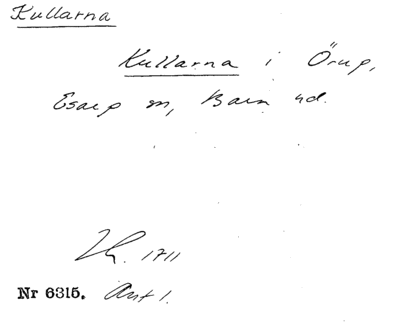 Kullarna
Kullarna i Örup,
Esarp sn, Bara hd.
1711
Nr 6315. Avt 1.